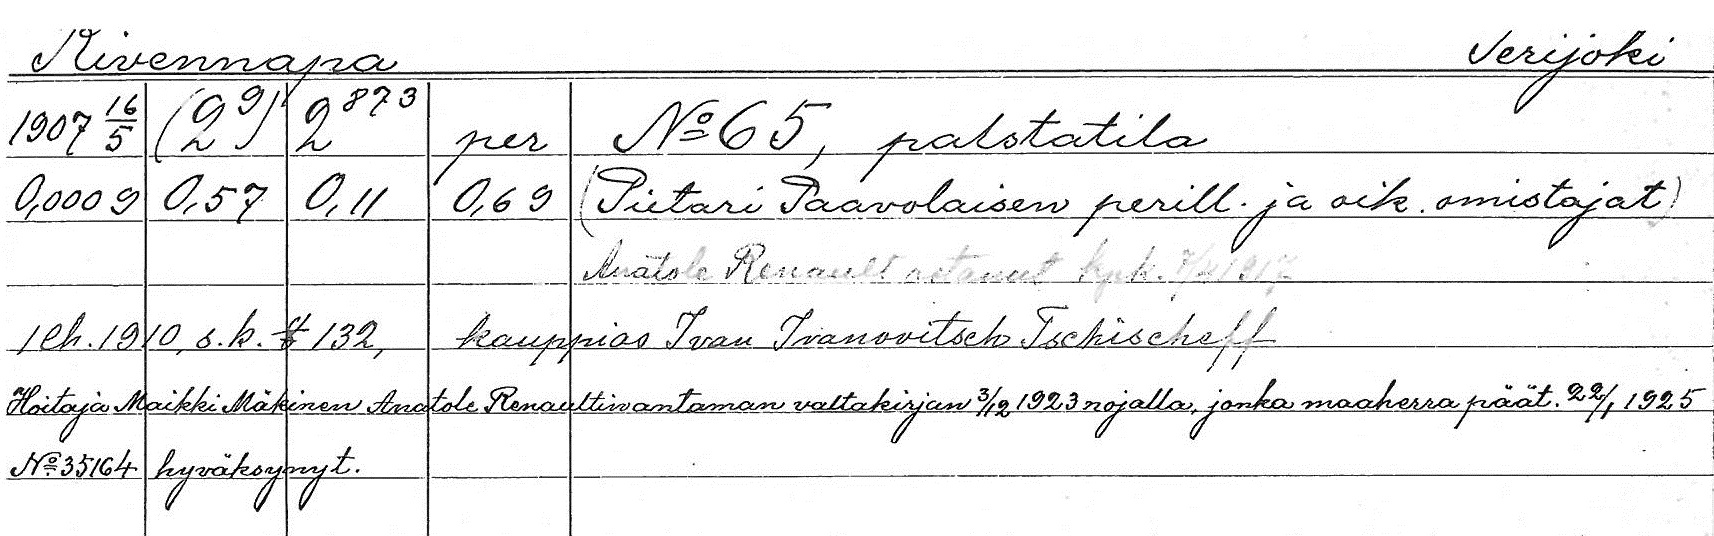 Kivennapa Terijoki
1907 16/5 (2⁹) 2⁸⁷³ per No 65, palstatila
0,0009 0,57 0,11 0,69 (Pietari Paavolaisen perill. ja oik. omistajat)
Anatole Renault ostanut kpk.
1 eh. 1910, s.k. # 132, kauppias Ivan Ivanovitsch Tschischeff
Hoitaja Maikki Mäkinen Anatole Renaultin antaman valtakirjan 3/12 1923 nojalla, jonka maaherra päät. 22/1 1925
No 35164 hyväksynyt.